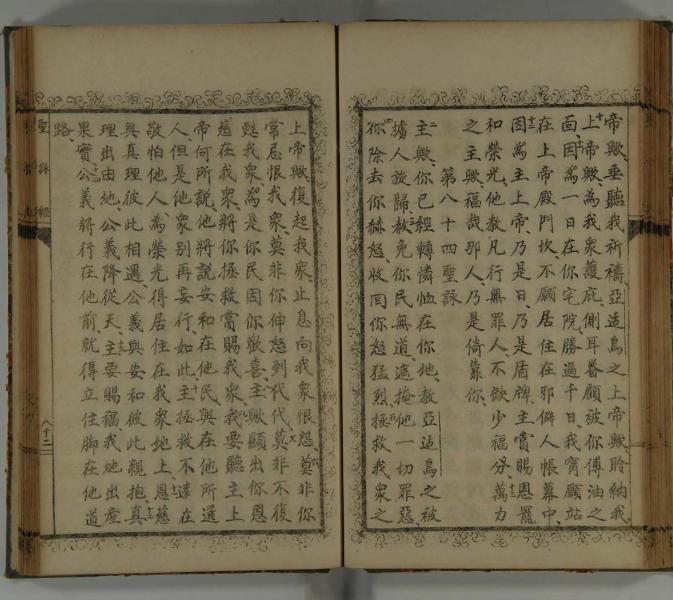 帝歟、垂聽我祈禱、亞适烏之上帝歟、聆納我
上帝歟、為我衆護庇、側耳眷顧被你傅油之
面、因為一日在你宅院、勝過千日、我寧願站
在上帝殿門坎、不願居住在邪僻人帳幕中、
因為主上帝、乃是日、乃是盾牌、主賞賜恩寵
和榮光、他教凡行無罪人、不缺少福分、萬力
之主歟、福哉那人、乃是倚靠你、
第八十四聖詠
主歟、你已經轉憐恤在你地、教亞适烏之被
擄人旋歸、赦免你民無道、遮掩他一切罪惡、
你除去你赫怒、收回你怒猛烈、拯救我衆之
上帝歟、復起我衆、止息向我衆恨怨、莫非你
常忌恨我衆、莫非你伸怒列代代、莫非不復
甦我衆、為是你民因你歡喜、主歟、顯出你恩
慈在我衆、將你拯救當賜我衆、我要聽主上
帝何所説、他將説安和在他民、與在他所選
人、但是他衆別再妄行、如此主拯救不遠在
敬怕他人、為榮光得居住在我衆地上、恩慈
與真理彼此相遇、公義與安和彼此親抱、真
理出由地、公義降從天、主要賜福、我地出產
果實、公義將行在他前、就得立住脚在他道
路、
聖詠經
八十二